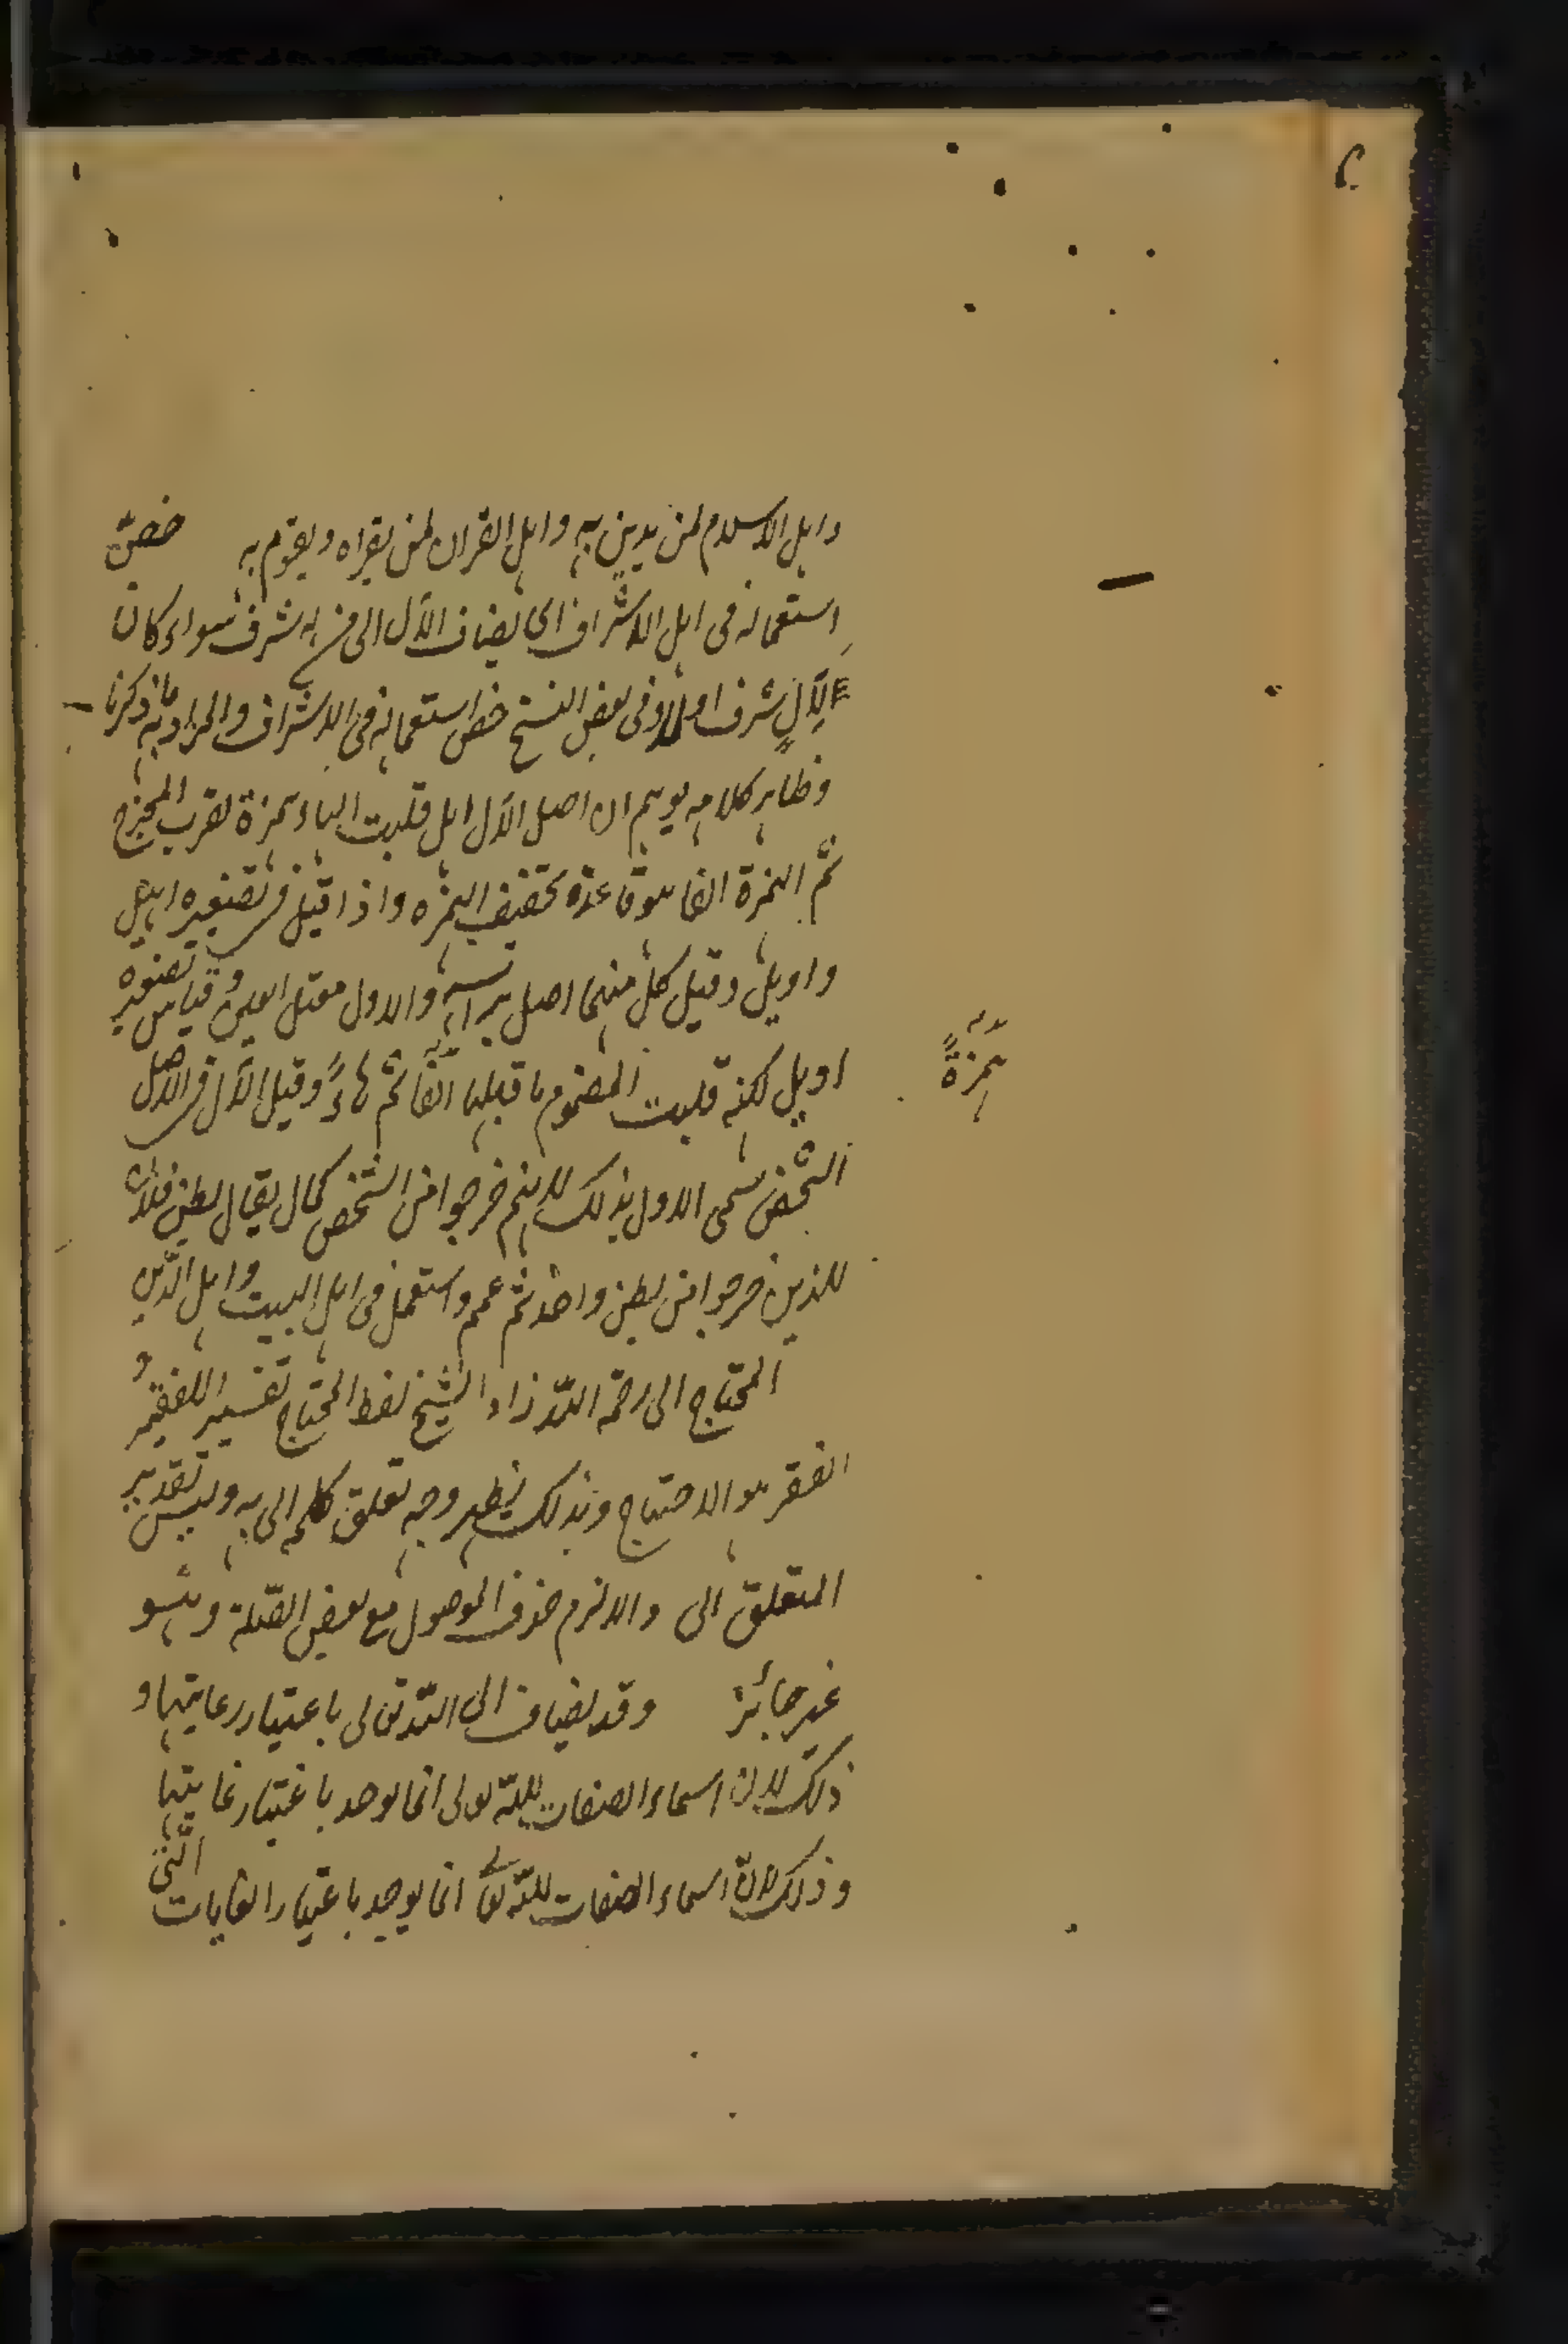 واهل الاسلام لمن يدين به واهل القران لمن يقراه ويقوم به خصّ
استعماله فى اهل الاشراف اى يضاف الآل الى من له شرف سواء كان
للآل شرف اولا وفى بعض النسخ خص استعماله فى الاشراف والمراد به ما ذكرنا
وظاهر كلامه يوهم ان اصل الآل اهل قلبت الهاء همزة لقرب المخرج
ثم الهمزة الفا هو قاعدة تخفيف الهمزه واذا قيل فى تصغيره اهيل
واويل وقيل كل منهما اصل براسه والاول معتل العين وقياس تصغيره
اويل لكنه قلبت المضموم ما قبلها الفا ثم هاءً وقيل الآل فى الاصل
همزةً
الشخص سمى الاول بذلك لانهم خرجوا من الشخص كما يقال بطن فلان
للذين خرجوا من بطن واحد ثم عمم واستعمل فى اهل البيت واهل الدّين
المحتاج الى رحمة اللّه زاد الشيخ لفظ المحتاج تفسير اللفقير و
الفقر هو الاحتياج وبذلك يظهر وجه تعلق كلمة الى به وليس تقدير
المتعلق الى والا لزم حذف الموصول مع بعض الصّلة وهو
غير جائز وقد يضاف الى اللّه تعالى باعتبار رعايتها و
ذلك لان اسماء الصفات للّه تعالى انما يوجد باعتبار غايتها
وذلك لانّ اسماء الصفات للّه تعا انما يوجد باعتبار الغايات الّتى